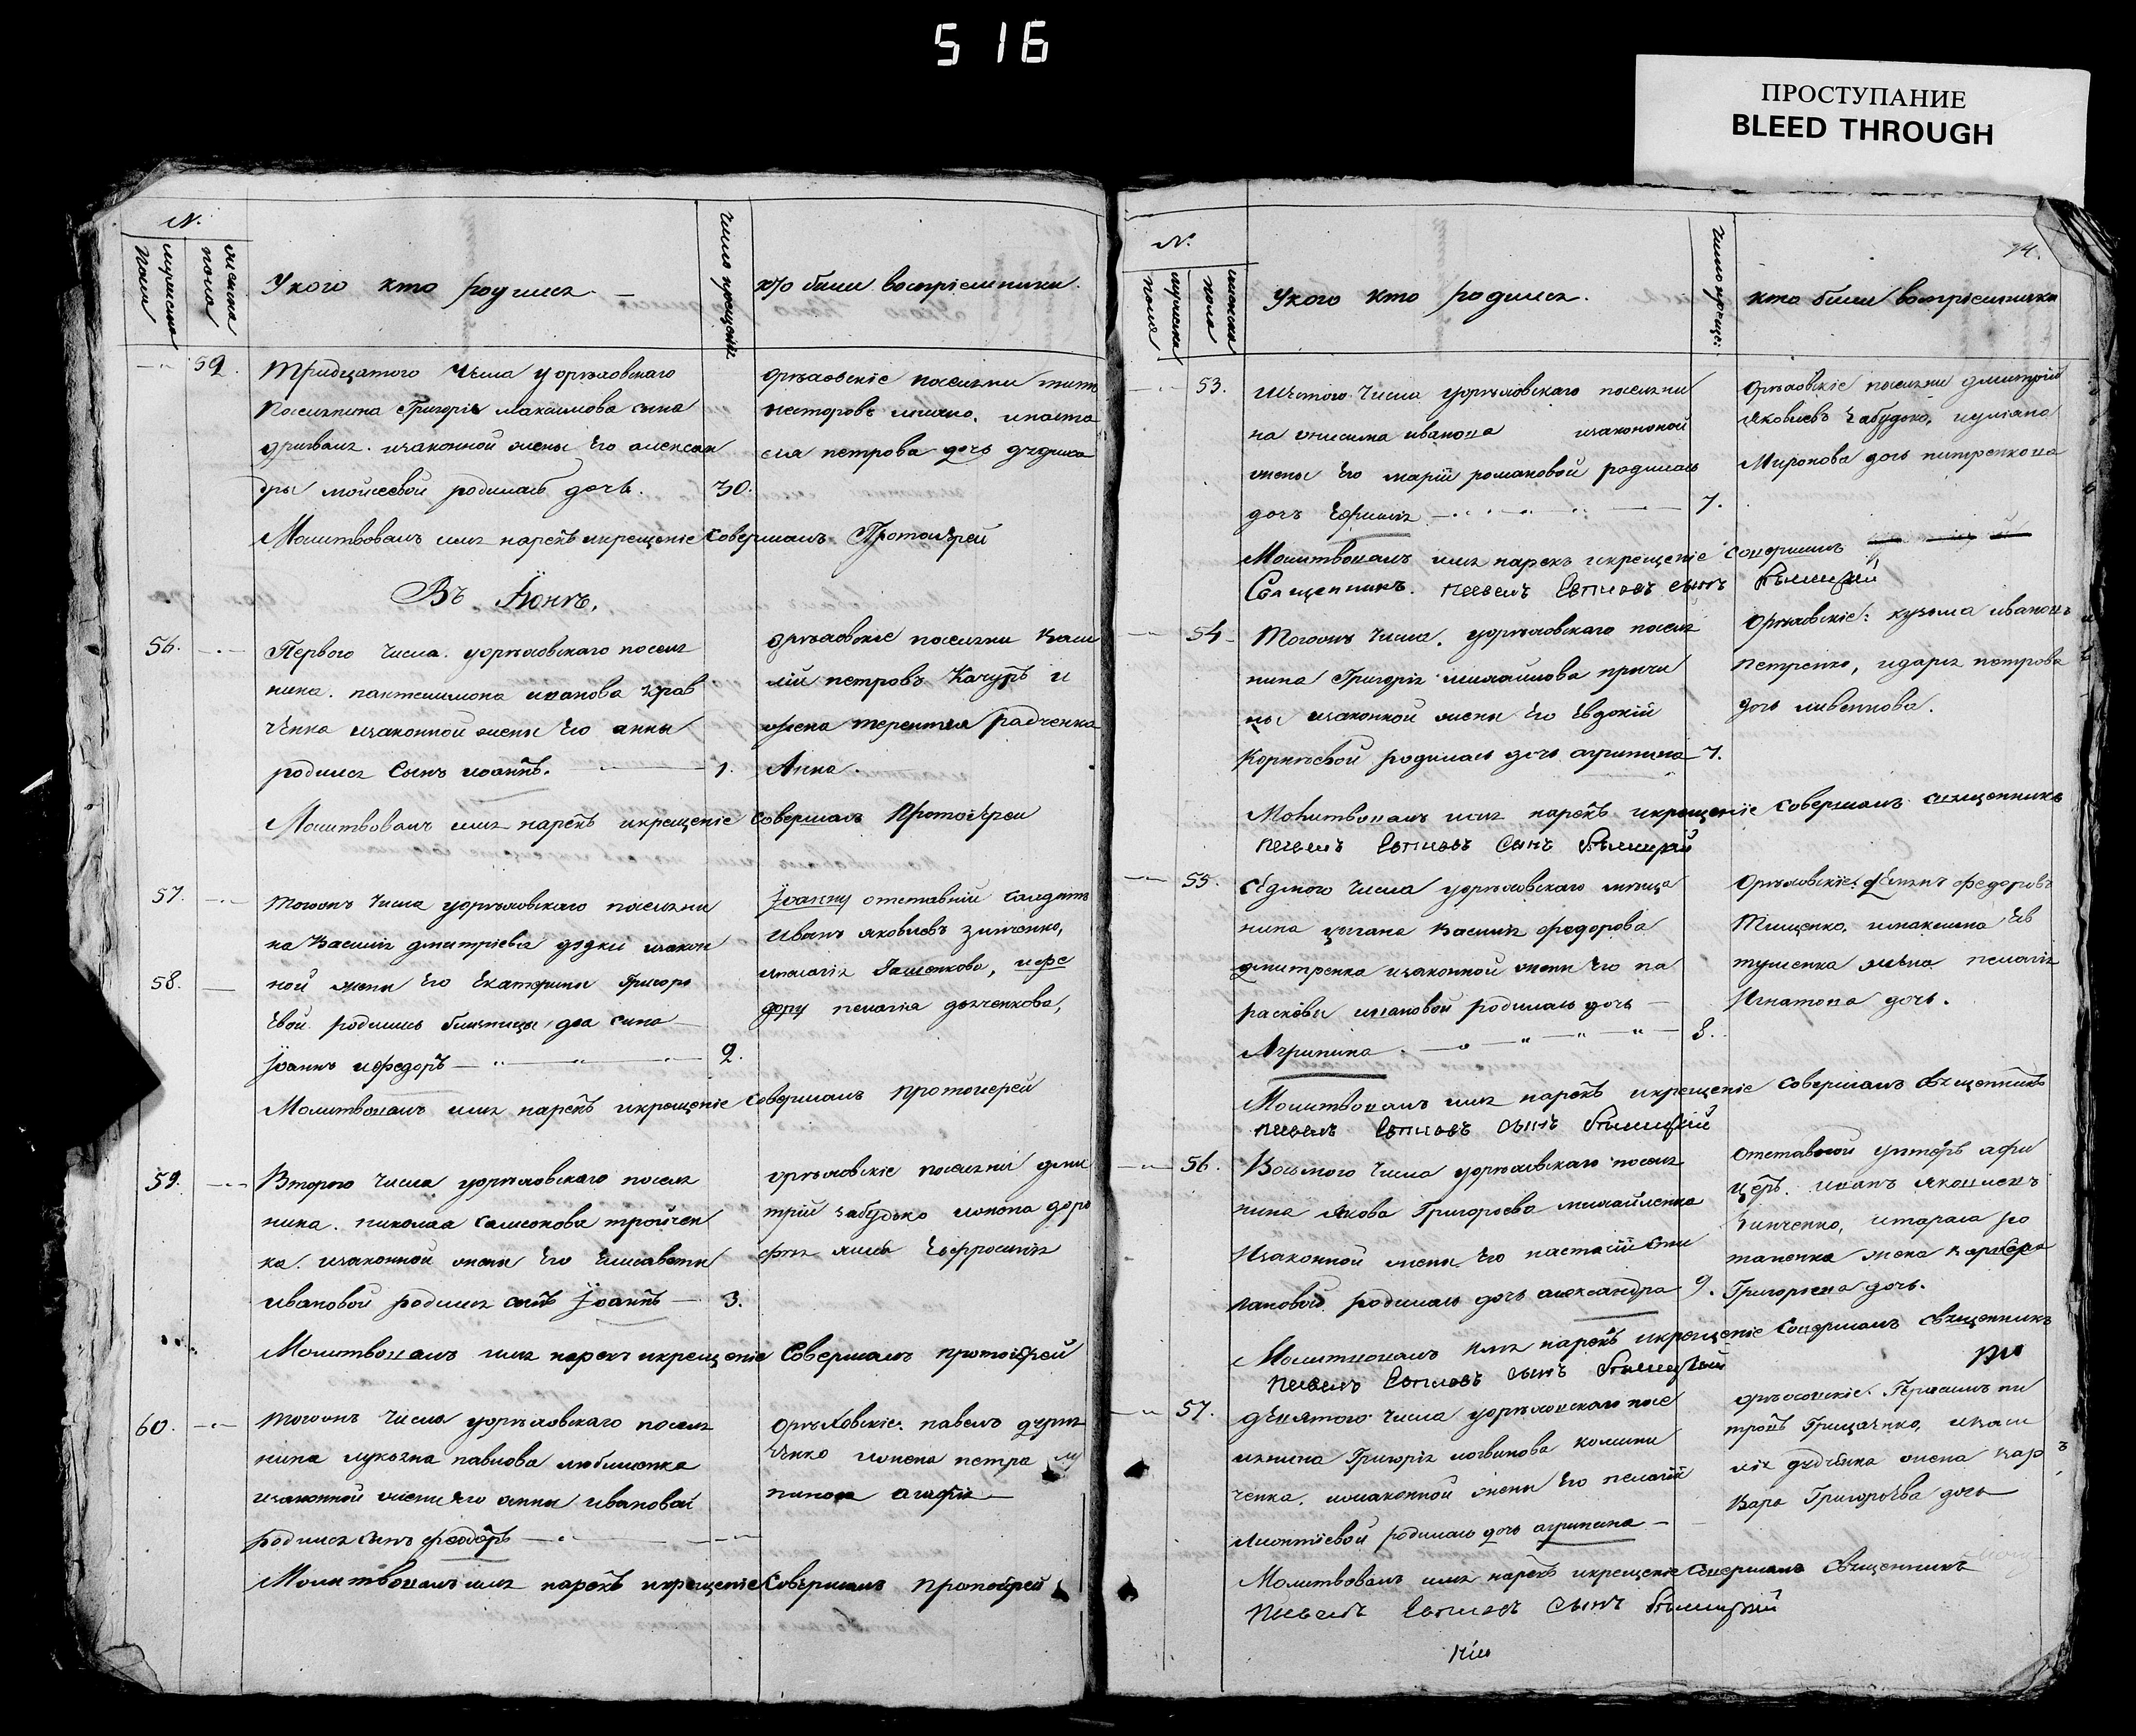 516
ПРОСТУПАНИЕ
BLEED THROUGH
N.
мужеска пола
женска пола
У кого кто родился
число крещенія
кто были восприемники.
52.
Тридцатого числа у орѣховскаго
поселянина Григорія Максимова сына
изаконной жены его алексан
дры мойсеевой родилась дочь.
30.
Орѣховскіе поселяни титъ
несторовъ
петрова дочь
Молитвовалъ имя нарекъ икрещеніе совершалъ Протоіерей
Въ Іюнѣ.
56.
Первого числа. у орѣховскаго посел
нина. пантелимона иванова крав
ченка изаконной жены его анны
родился сынъ иоаннъ.
1.
орѣховскіе поселяни васи
лій петровъ Качуръ и
жена терентия радченка
Анна.
Молитвовалъ имя нарекъ икрещеніе совершалъ Протоіереи
57.
58.
тогожъ числа у орѣховскаго поселяни
на Василія дмитріева дудки изакон
ной жены его екатерины григорь
евой родились близнецы два сына
Іоаннъ ифедоръ
2.
Іоанну отставній салдатъ
Иванъ яковлевъ зинченко,
ипелагія
ифе
дору пелагія дьяченкова,
Молитвовалъ имя нарекъ икрещеніе совершалъ протоиерей
59.
Второго числа у орѣховскаго посел
нина. николая самсонова тройчен
ка. изаконной жены его елисаветы
ивановой родился сынъ Іоаннъ
3.
орѣховскіе поселяни дми
трій забудько ижена доро
фея Ефросинія
Молитвовалъ имя нарекъ икрещеніе совершалъ протоиерей
60.
тогожъ числа у орѣховскаго посел
нина лукьяна павлова любименка
изаконной жены его анны ивановой
родился сынъ феодоръ
Орѣховскіе. павелъ
ченко ижена петра
агафія
Молитвовалъ имя нарекъ икрещеніе совершалъ протоіерей
74.
N.
мужеска пола
женска пола
У кого кто родился.
число креще:
кто были восприемники
53.
шестого числа у орѣховскаго поселяни
на онисима иванова изаконной
жены его маріи романовой родилась
дочь Ефимія
7.
Орѣховскіе поселяни дмитрій
яковлевъ забудько, иуліана
Миронова дочь питренкова
Молитвовалъ имя нарекъ икрещеніе совершалъ
Священникъ. Павелъ Евтиевъ сынъ
54
Тогожъ числа. у орѣховскаго посел
нина Григорія михайлова
изаконной жены его евдокій
Корнѣевой родилась дочь агрипина
7.
Орѣховскіе: кузьма ивановъ
петренко, идарія петрова
дочь ливенцова.
Молитвовалъ имя нарекъ икрещеніе совершалъ священникъ
Павелъ Евтиевъ сынъ
55.
седмого числа у орѣховскаго меща
нина цыгана василія федорова
дмитренка изаконной жены его па
расковіи ивановой родилась дочь
Агрипина
8.
Орѣховскіе. федоровъ
Тищенко, имаксима ев
тушенка жена пелагія
Игнатова дочь.
Молитвовалъ имя нарекъ икрещеніе совершалъ священникъ
Павелъ Евтиевъ сынъ
56.
Восьмого числа у орѣховскаго посел
нина якова Григорьева михайленка
изаконной жены его настасіи сти
пановой родилась дочь александра
9.
отставной унтеръ афи
церъ. иванъ яковлевъ
зинченко, итараса ро
маненка жена варвара
Григорьева дочь.
Молитвовалъ имя нарекъ икрещеніе совершалъ священникъ
Павелъ Евтиевъ сынъ
57.
девятого числа у орѣховскаго посе
лянина Григорія логвинова
ченка. изаконной жены его пелагіи
леонтіевой родилась дочь агрипина
орѣховскіе. Герасимъ пи
тровъ Грищенко, иваси
лія жена вар
вара Григорьева дочь
Молитвовалъ имя нарекъ икрещеніе совершалъ Священникъ
Павелъ Евтиевъ сынъ